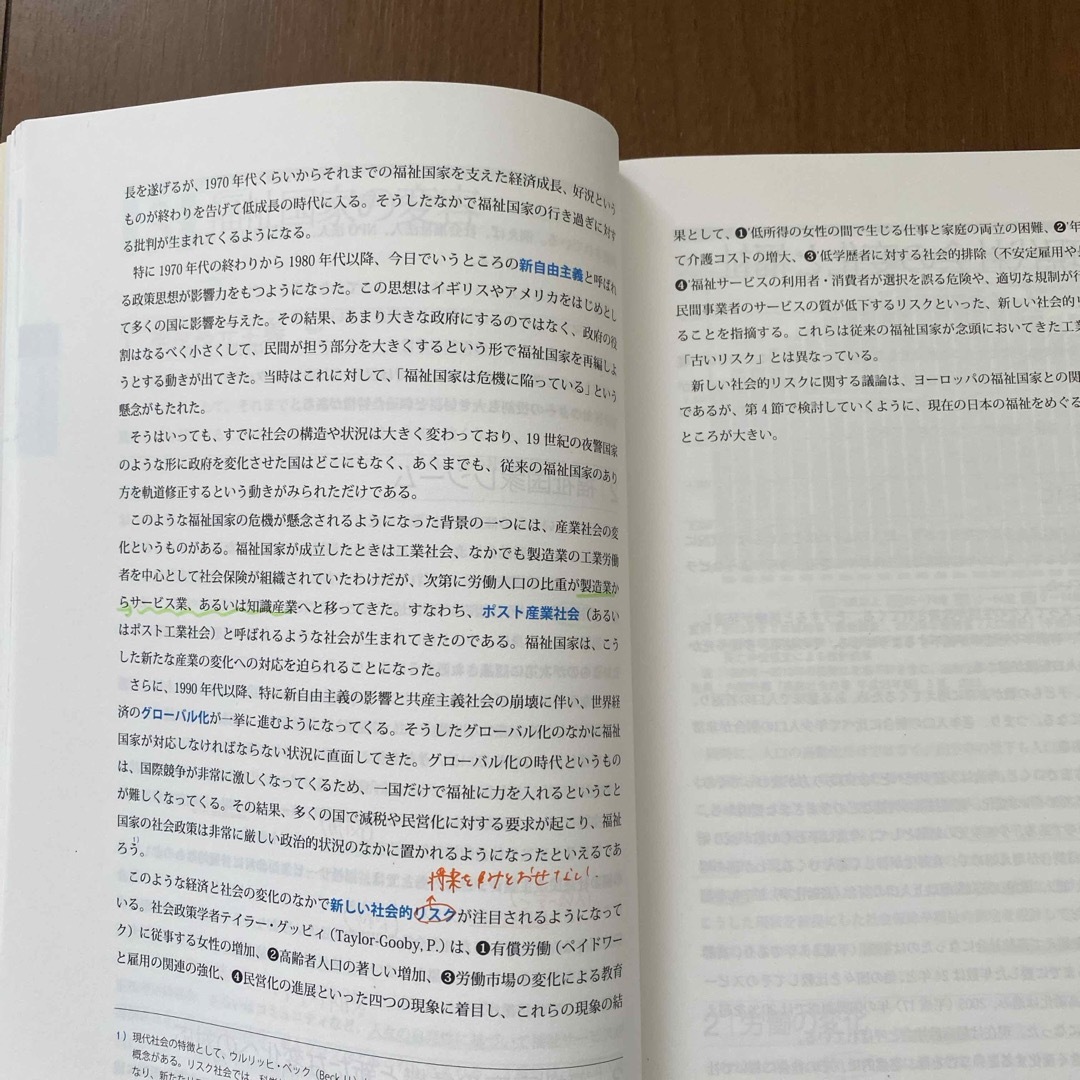 長を遂げるが、1970年代くらいからそれまでの福祉国家を支えた経済成長、好況という
ものが終わりを告げて低成長の時代に入る。そうしたなかで福祉国家の行き過ぎに対す
る批判が生まれてくるようになる。
特に1970年代の終わりから1980年代以降、今日でいうところの新自由主義と呼ばれ
る政策思想が影響力をもつようになった。この思想はイギリスやアメリカをはじめとし
て多くの国に影響を与えた。その結果、あまり大きな政府にするのではなく、政府の役
割はなるべく小さくして、民間が担う部分を大きくするという形で福祉国家を再編しよ
うとする動きが出てきた。当時はこれに対して、「福祉国家は危機に陥っている」という
懸念がもたれた。
そうはいっても、すでに社会の構造や状況は大きく変わっており、19世紀の夜警国家
のような形に政府を変化させた国はどこにもなく、あくまでも、従来の福祉国家のあり
方を軌道修正するという動きがみられただけである。
このような福祉国家の危機が懸念されるようになった背景の一つには、産業社会の変
化というものがある。福祉国家が成立したときは工業社会、なかでも製造業の工業労働
者を中心として社会保険が組織されていたわけだが、次第に労働人口の比重が製造業か
らサービス業、あるいは知識産業へと移ってきた。すなわち、ポスト産業社会（あるい
はポスト工業社会）と呼ばれるような社会が生まれてきたのである。福祉国家は、こう
した新たな産業の変化への対応を迫られることになった。
さらに、1990年代以降、特に新自由主義の影響と共産主義社会の崩壊に伴い、世界経
済のグローバル化が一挙に進むようになってくる。そうしたグローバル化のなかに福祉
国家が対応しなければならない状況に直面してきた。グローバル化の時代というもの
は、国際競争が非常に激しくなってくるため、一国だけで福祉に力を入れるということ
が難しくなってくる。その結果、多くの国で減税や民営化に対する要求が起こり、福祉
国家の社会政策は非常に厳しい政治的状況のなかに置かれるようになったといえるであ
ろう。
将来を
このような経済と社会の変化のなかで新しい社会的リスクが注目されるようになって
いる。社会政策学者テイラー・グッビィ（Taylor-Gooby, P.）は、❶有償労働（ペイドワー
ク）に従事する女性の増加、❷高齢者人口の著しい増加、❸労働市場の変化による教育
と雇用の関連の強化、❹民営化の進展といった四つの現象に着目し、これらの現象の結
1）現代社会の特徴として、ウルリッヒ・ベック（Beck
概念がある。リスク社会では、
なり、新たな
果として、❶'低所得の女性の間で生じる仕事と家庭の両立の困難、❷'年
て介護コストの増大、❸'低学歴者に対する社会的排除（不安定雇用や
❹'福祉サービスの利用者・消費者が選択を誤る危険や、適切な規制が行
民間事業者のサービスの質が低下するリスクといった、新しい社会的
ることを指摘する。これらは従来の福祉国家が念頭においてきた工業
「古いリスク」とは異なっている。
新しい社会的リスクに関する議論は、ヨーロッパの福祉国家との関
であるが、第4節で検討していくように、現在の日本の福祉をめぐる
ところが大きい。